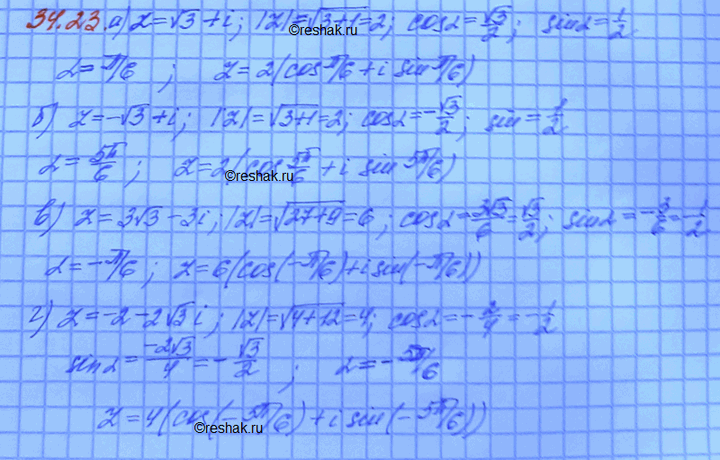 34.23. а) z = √3 + i; |z| = √(3+1) = 2; cosα = √3/2; sinα = 1/2
©reshak.ru
α = π/6; z = 2(cos π/6 + i sin π/6)
б) z = -√3 + i; |z| = √(3+1) = 2; cosα = -√3/2; sin = 1/2
α = 5π/6; z = 2(cos 5π/6 + i sin 5π/6)
©reshak.ru
в) z = 3√3 - 3i; |z| = √(27+9) = 6; cosα = 3√3/6 = √3/2; sinα = -3/6 = -1/2
α = -π/6; z = 6(cos(-π/6) + i sin(-π/6))
г) z = -2 - 2√3 i; |z| = √(4+12) = 4; cosα = -2/4 = -1/2
sinα = -2√3/4 = -√3/2; α = -5π/6
z = 4(cos(-5π/6) + i sin(-5π/6))
©reshak.ru